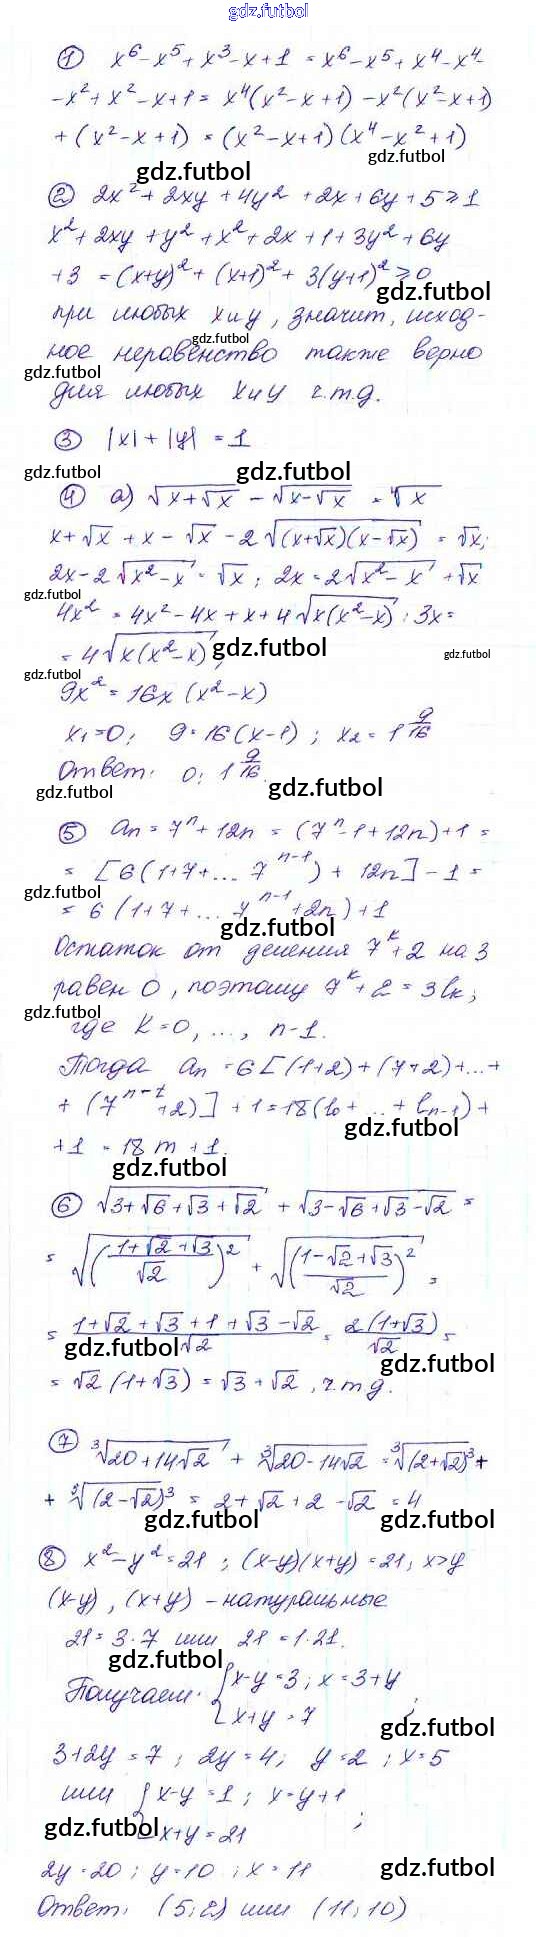 gdz.futbol
① x⁶ - x⁵ + x³ - x + 1 = x⁶ - x⁵ + x⁴ - x⁴ -
- x² + x² - x + 1 = x⁴(x² - x + 1) - x²(x² - x + 1)
+ (x² - x + 1) = (x² - x + 1)(x⁴ - x² + 1)
gdz.futbol
gdz.futbol
② 2x² + 2xy + 4y² + 2x + 6y + 5 ≥ 1
x² + 2xy + y² + x² + 2x + 1 + 3y² + 6y
+ 3 = (x+y)² + (x+1)² + 3(y+1)² ≥ 0
gdz.futbol
при любых x и y, значит, исход-
gdz.futbol
ное неравенство также верно
gdz.futbol
для любых x и y ч.т.д.
③ |x| + |y| = 1
gdz.futbol
gdz.futbol
④ а) √(x+√x) - √(x-√x) = ⁴√x
x + √x + x - √x - 2√((x+√x)(x-√x)) = √x;
2x - 2√(x²-x) = √x; 2x = 2√(x²-x) + √x
gdz.futbol
4x² = 4x² - 4x + x + 4√(x(x²-x)); 3x =
= 4√(x(x²-x));
gdz.futbol
gdz.futbol
gdz.futbol
9x² = 16x(x²-x)
x₁ = 0; 9 = 16(x-1); x₂ = 1 9/16
Ответ: 0; 1 9/16.
gdz.futbol
gdz.futbol
⑤ aₙ = 7ⁿ + 12n = (7ⁿ - 1 + 12n) + 1 =
= [6(1+7+... 7ⁿ⁻¹) + 12n] - 1 =
gdz.futbol
= 6(1+7+... 7ⁿ⁻¹ + 2n) + 1
gdz.futbol
Остаток от деления 7ᵏ + 2 на 3
равен 0, поэтому 7ᵏ + 2 = 3lₖ,
gdz.futbol
где k = 0, ..., n-1.
Тогда aₙ = 6[(1+2) + (7+2) + ... +
+ (7ⁿ⁻¹ + 2)] + 1 = 18(l₀ + ... + lₙ₋₁) +
gdz.futbol
+ 1 = 18m + 1.
gdz.futbol
⑥ √(3+√6+√3+√2) + √(3-√6+√3-√2) =
= √(((1+√2+√3)/√2)²) + √(((1-√2+√3)/√2)²) =
= (1+√2+√3+1+√3-√2)/√2 = 2(1+√3)/√2 =
gdz.futbol
gdz.futbol
= √2(1+√3) = √3+√2, ч.т.д.
⑦ ³√(20+14√2) + ³√(20-14√2) = ³√((2+√2)³) +
+ ³√((2-√2)³) = 2+√2+2-√2 = 4
gdz.futbol
gdz.futbol
⑧ x² - y² = 21; (x-y)(x+y) = 21, x>y
(x-y), (x+y) - натуральные
21 = 3·7 или 21 = 1·21.
gdz.futbol
Получаем: { x-y = 3; x = 3+y
x+y = 7;
gdz.futbol
3+2y = 7; 2y = 4; y = 2; x = 5
или { x-y = 1; x = y+1
x+y = 21;
gdz.futbol
2y = 20; y = 10; x = 11
gdz.futbol
Ответ: (5; 2) или (11; 10)